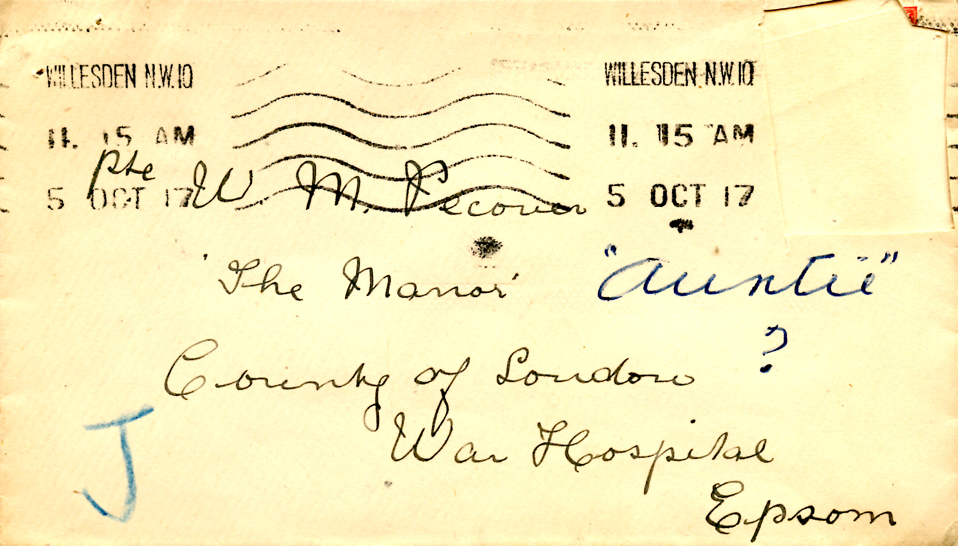 WILLESDEN N.W.10 WILLESDEN N.W.10
11. 15 AM 11. 15 AM
5 OCT 17 5 OCT 17
Pte W M. Pecover
'The Manor' "Auntie"
?
County of London
War Hospital
Epsom
J